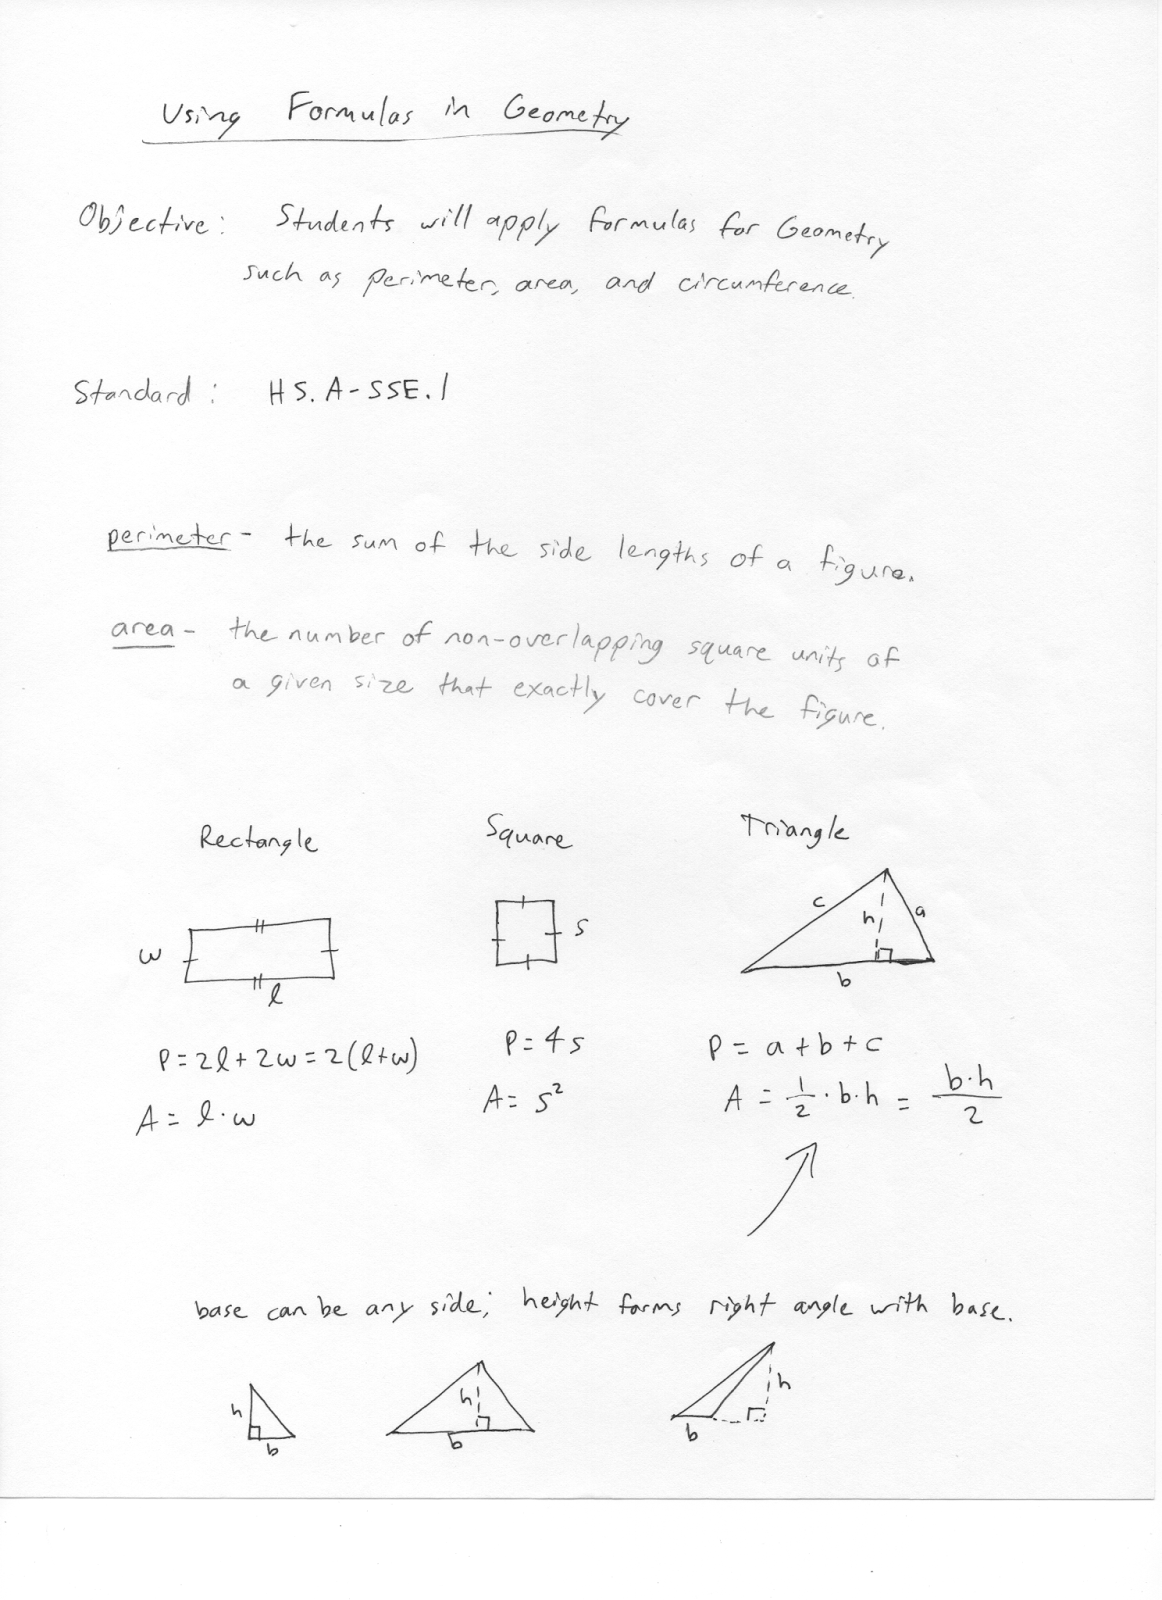 Using Formulas in Geometry
Objective: Students will apply formulas for Geometry
such as perimeter, area, and circumference.
Standard: HS.A-SSE.1
perimeter - the sum of the side lengths of a figure.
area - the number of non-overlapping square units of
a given size that exactly cover the figure.
Rectangle
w
l
P = 2l + 2w = 2(l+w)
A = l · w
Square
s
P = 4s
A = s²
Triangle
c
h
a
b
P = a + b + c
A = 1/2 · b · h = b·h/2
base can be any side; height forms right angle with base.
h
b
h
b
h
b